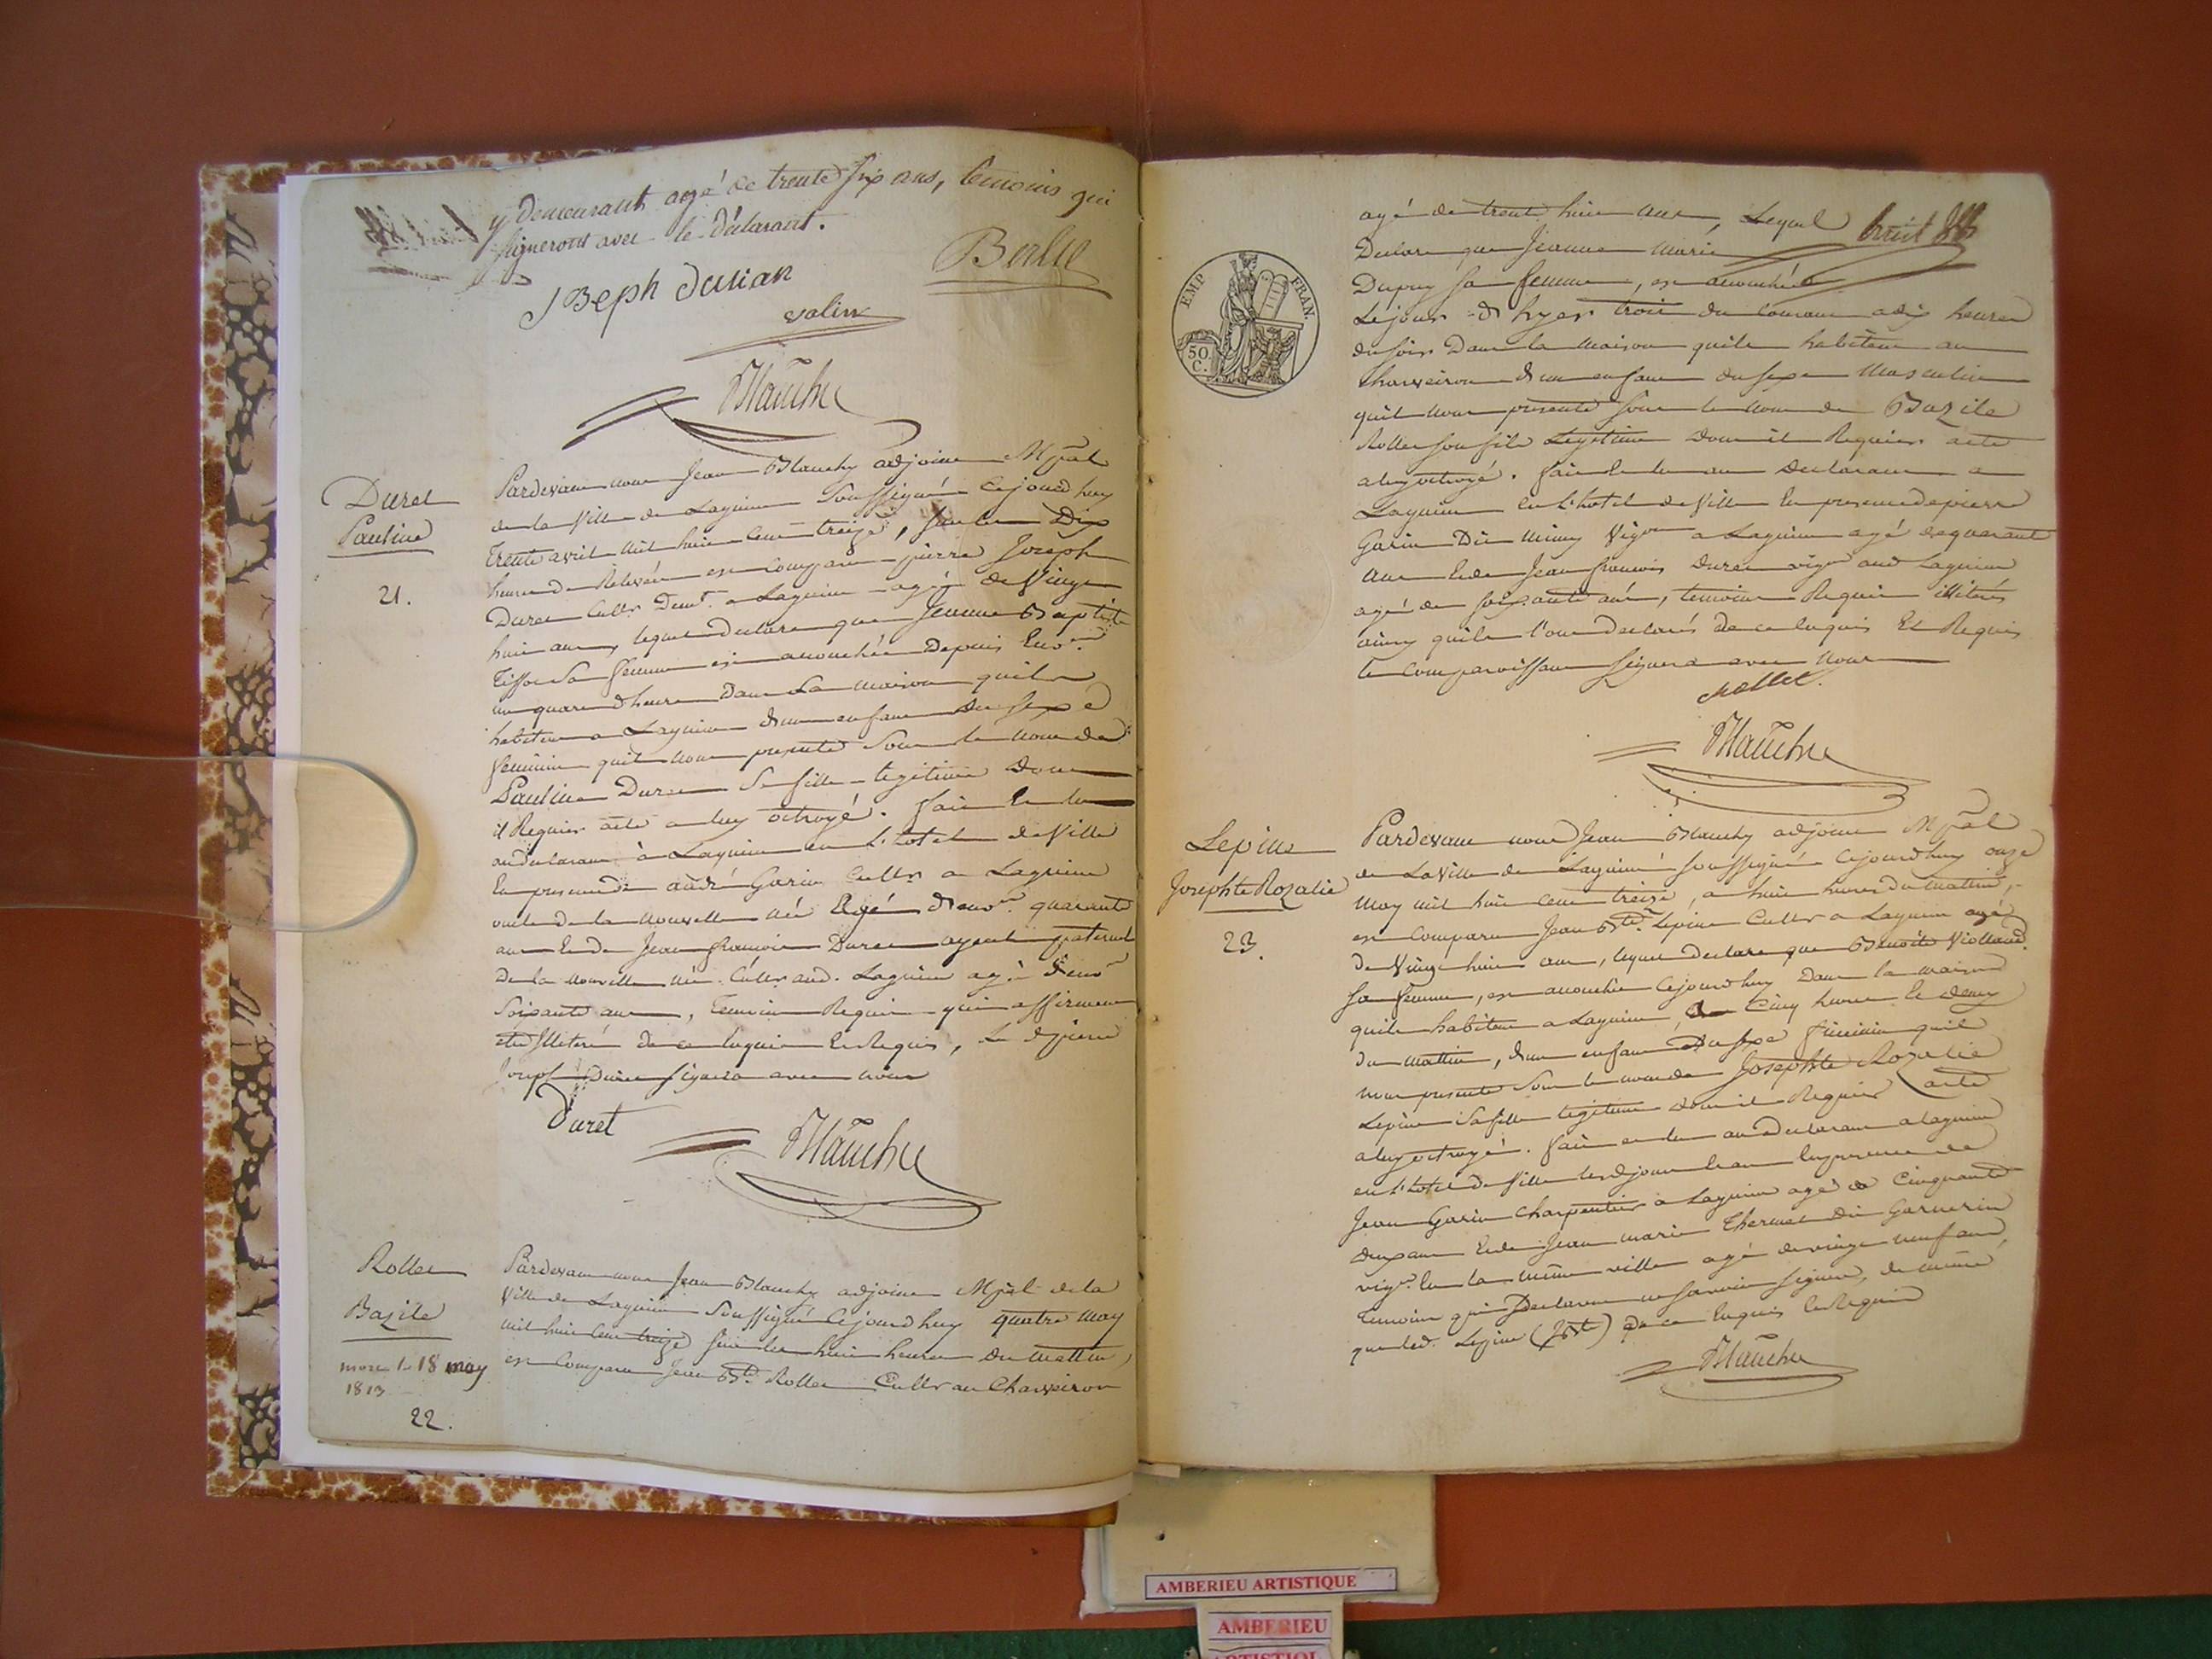 y demeurant agé de trente six ans, temoins qui
signeront avec le déclarant.
Joseph Julian
Berlie
valin
Blanchy
Duret
Pauline
21.
Pardevant nous Jean Blanchy adjoint Mpãl
de la Ville de Lagnieu Soussigné Cejourd'huy
trente avril mil huit cent treize, sur les Dix
heures de Relevée est comparu pierre Joseph
Duret Cultr Demt. a Lagnieu agé de Vingt
huit ans, lequel declare que Jeanne Baptiste
Tissot Sa femme est accouchée Depuis Envon
un quart d'heure dans La maison quils
habitent a Lagnieu d'un enfant du Sexe
feminin quil nous presente Sous le nom de
Pauline Duret Sa fille legitime Dont
il Requier acte a luy octroyé. fait Et lu
au declarant à Lagnieu en L'hotel de Ville
En presence de andré Garin Cultr a Lagnieu
oncle de la nouvelle née Agé d'envon quarante
ans Et de Jean francois Duret ayeul paternel
De la nouvelle née Cultr aud. Lagnieu agé d'envon
Soixante ans, Temoins Requis qui affirment
être Illeterés de ce Enquis Et Requis, Le d. pierre
Joseph Duret signera avec nous
Duret
Blanchy
Rollet
Bazile
mort le 18 may
1813
22.
Pardevant nous Jean Blanchy adjoint Mpãl de la
Ville de Lagnieu Soussigné Cejourd'huy quatre may
mil huit cent treize sur les huit heures du matin,
est Comparu Jean Bte. Rollet Cultr au Charveiron
agé de trente huit ans, Lequel
Declare que Jeanne Marie
Dupuy sa femme, est accouchée
Lejour d'hyer trois du courant a dix heures
du soir Dans la maison quils habitent au
Charveiron d'un enfant du sexe Masculin
quil nous presente sous le nom de Bazile
Rollet son fils Legitime Dont il Requier acte
a luy octroyé. fait Et lu au declarant a
Lagnieu en L'hotel de Ville En presence de pierre
Garin Dit mimy Vigon a Lagnieu agé de quarante
ans Et de Jean francois Duret vigon aud Lagnieu
agé de soixante ans, temoins Requis illiterés
ainsy quils l'ont declarés de ce Enquis Et Requis
le Comparaissant signera avec nous
Rollet.
Blanchy
EMP
FRAN.
50
C.
Lepine
Josephte Rozalie
23.
Pardevant nous Jean Blanchy adjoint Mpãl
de La Ville de Lagnieu Soussigné Cejourd'huy onze
May mil huit cent treize, a huit heures du Mattin,
est Comparu Jean Bte. Lepine Cultr a Lagnieu agé
de Vingt huit ans, lequel declare que Benoite Violland
sa femme, est accouchée Cejourd'huy Dans la maison
quils habitent a Lagnieu, a Cinq heures Et demy
du mattin, d'un enfant du sexe feminin quil
nous presente Sous le nom de Josephte Rozalie
Lepine Sa fille legitime Dont il Requier acte
a luy octroyé. fait et lu au declarant a Lagnieu
en L'hotel de Ville lesd jour Et an En presence de
Jean Garin Charpentier a Lagnieu agé de Cinquante
deux ans Et de Jean marie Thermet dit Garnerin
vigon. En la même ville agé de vingt neuf ans,
Temoins qui Declarent ne savoir signer, de même
que led. Lepine (JBte) de ce Enquis Et Requis
Blanchy
AMBERIEU ARTISTIQUE
AMBERIEU